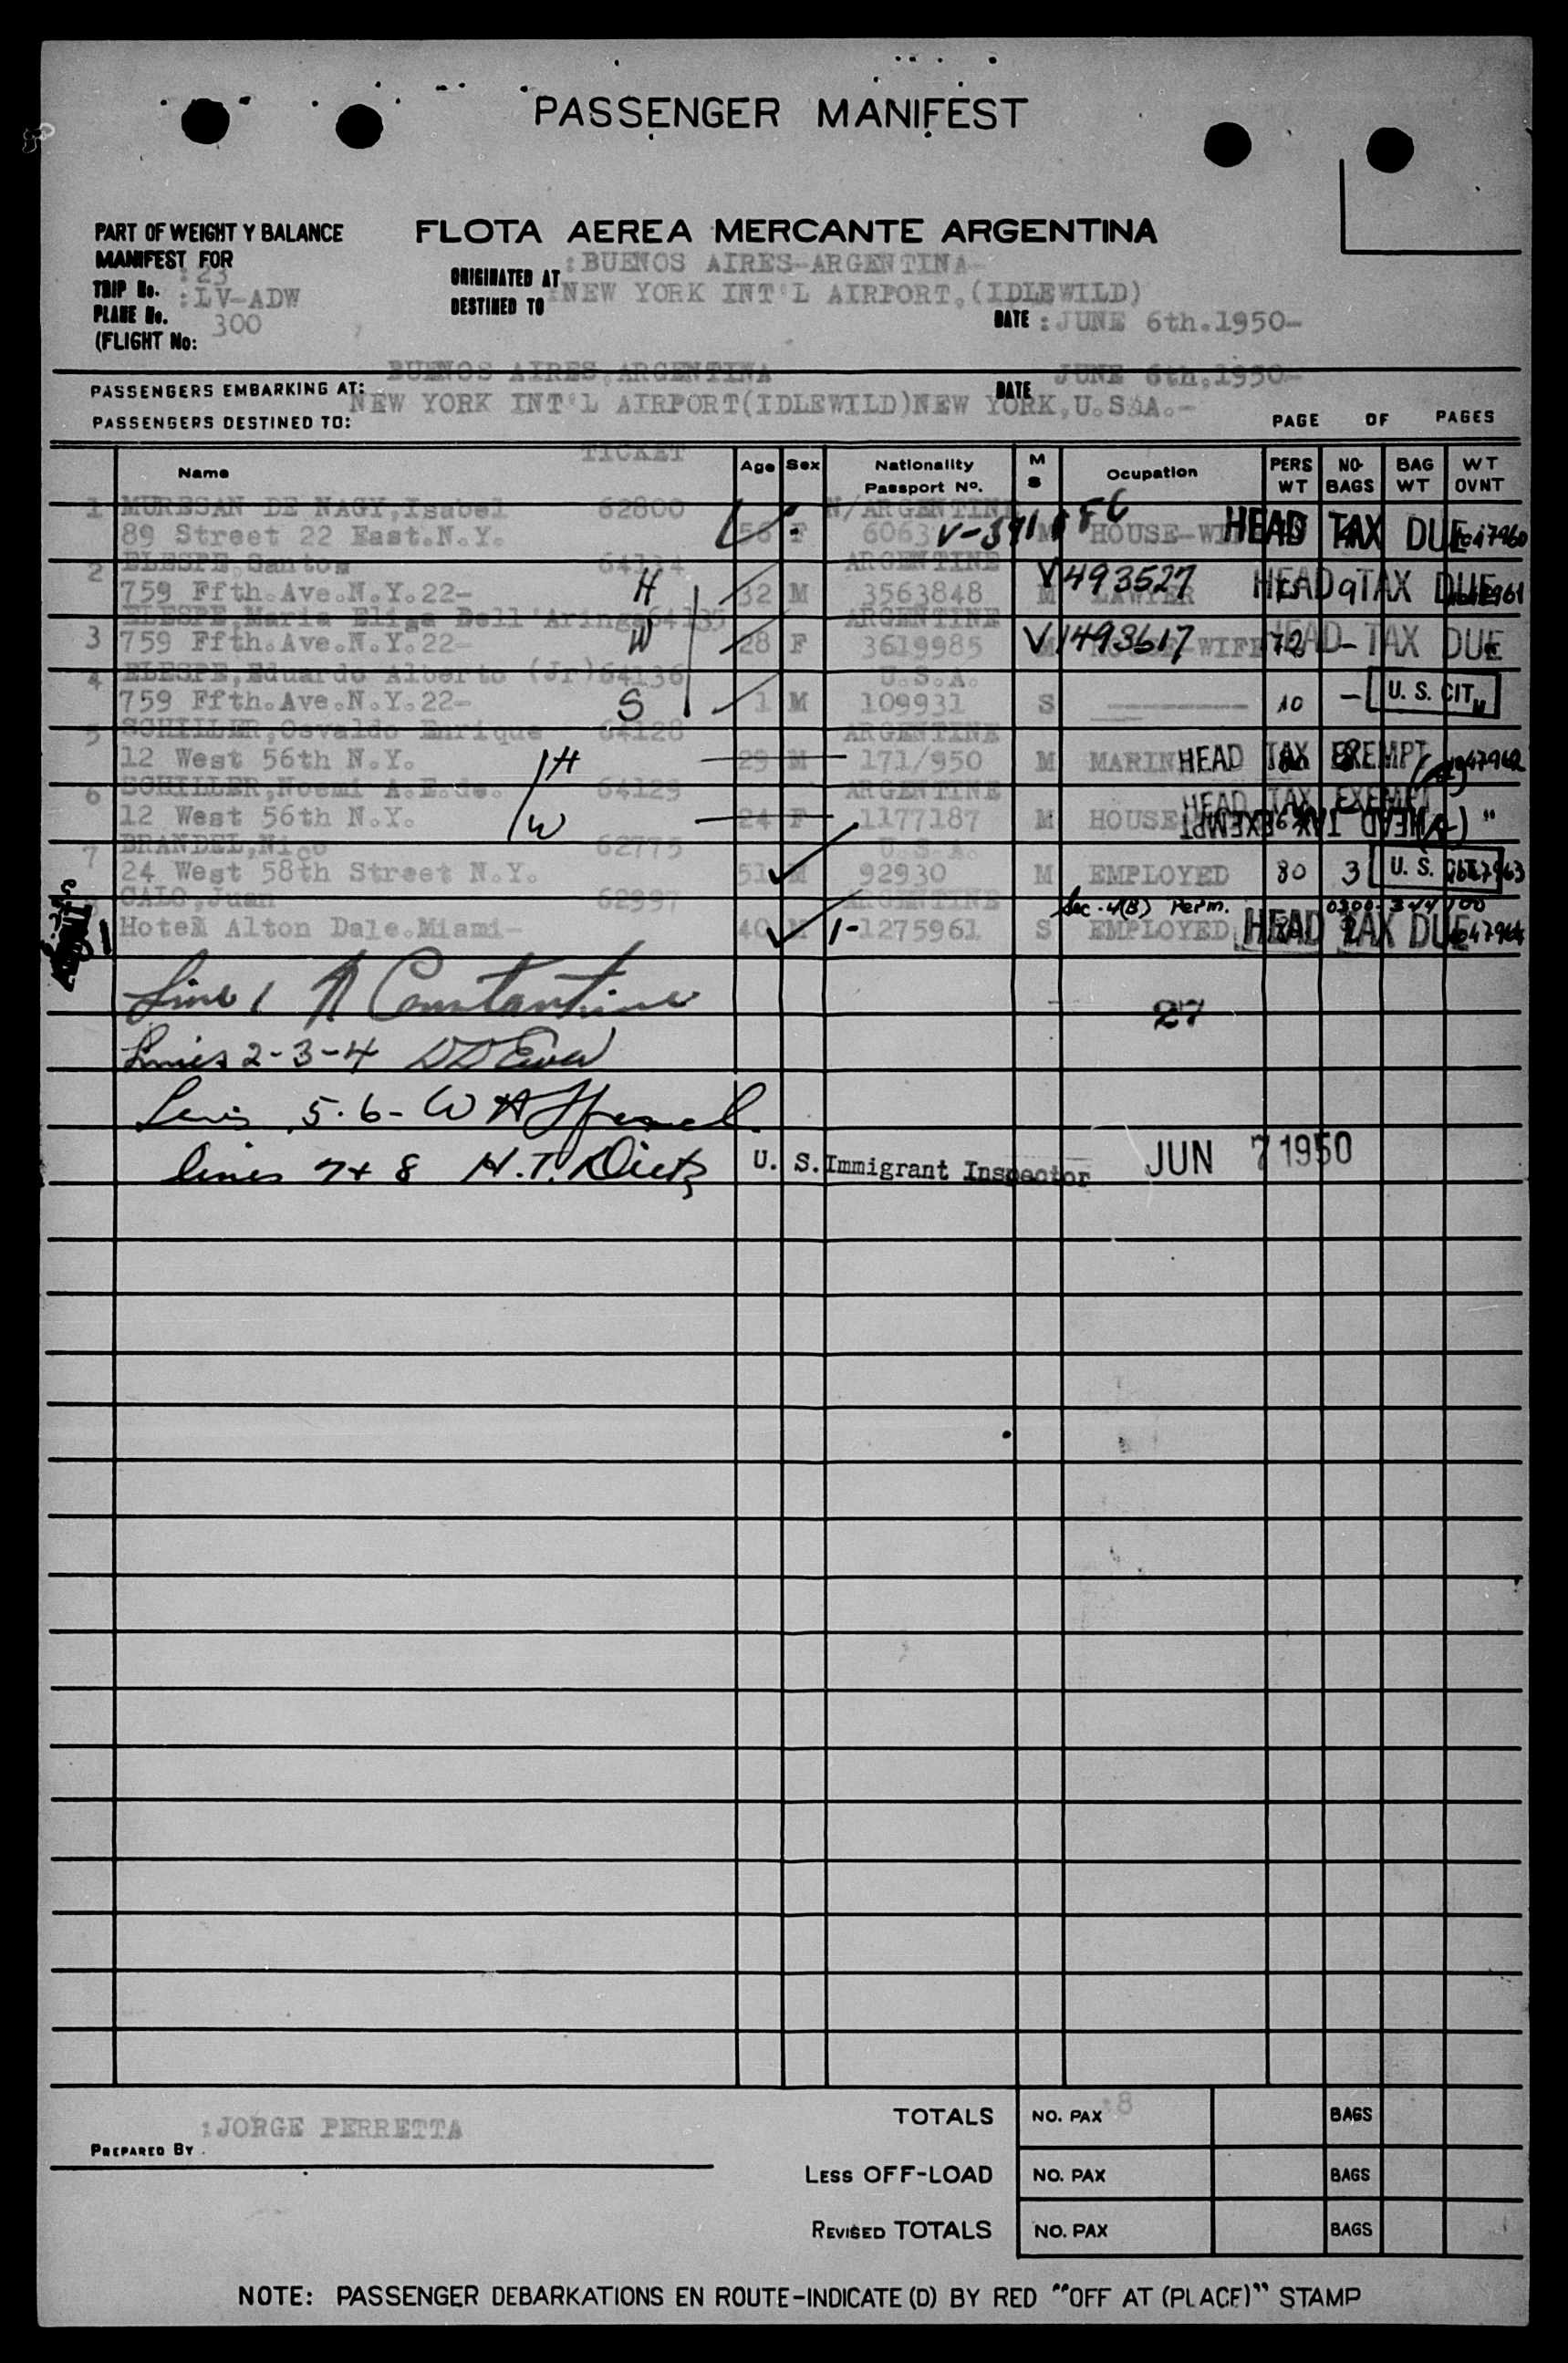 PASSENGER MANIFEST
PART OF WEIGHT Y BALANCE
MANIFEST FOR
FLOTA AEREA MERCANTE ARGENTINA
TRIP No. :23
PLANE No. :LV-ADW
(FLIGHT No: 300
ORIGINATED AT :BUENOS AIRES-ARGENTINA-
DESTINED TO :NEW YORK INT'L AIRPORT.(IDLEWILD)
DATE :JUNE 6th.1950-
PASSENGERS EMBARKING AT: BUENOS AIRES,ARGENTINA DATE JUNE 6th.1950-
PASSENGERS DESTINED TO: NEW YORK INT'L AIRPORT(IDLEWILD)NEW YORK,U.S.A.-
PAGE OF PAGES
Name TICKET Age Sex Nationality Passport No. M S Ocupation PERS WT NO- BAGS BAG WT WT OVNT
1 MURESAN DE NAGY,Isabel 62800 N/ARGENTINE FC
89 Street 22 East.N.Y. 56 F M HOUSE-WI HEAD TAX DUE
2 ELESPE,Santos 64134 ARGENTINE
759 Ffth.Ave.N.Y.22- H 32 M 3563848 M V1493527 LAWYER HEAD TAX DUE
ELESPE,Maria Elisa Dell'Aringa64135 ARGENTINE
3 759 Ffth.Ave.N.Y.22- W 28 F 3619985 V1493617 WIFE 72 - HEAD TAX DUE
4 ELESPE,Eduardo Alberto (Jr)64136 U.S.A.
759 Ffth.Ave.N.Y.22- S 1 M 109931 S 10 - U. S. CIT
5 SCHILLER,Osvaldo Enrique 64128 ARGENTINE
12 West 56th N.Y. H 29 M 171/950 M MARIN HEAD TAX EXEMPT
6 SCHILLER,Noemi A.E.de. 64129 ARGENTINE HEAD TAX EXEMPT
12 West 56th N.Y. W 24 F 1177187 M HOUSE HEAD TAX EXEMPT "
7 BRANDEL,Nico 62775 U.S.A.
24 West 58th Street N.Y. 51 M 92930 M EMPLOYED 80 3 U. S.
CALO,Juan 62997 ARGENTINE Sec. 4(B) Perm.
Hotel Alton Dale.Miami- 40 M 1-1275961 S EMPLOYED HEAD TAX DUE
Line 1 N Constantine 27
Lines 2-3-4
5-6- W
lines 7+8 H.T. Dietz U. S. Immigrant Inspector JUN 7 1950
PREPARED BY :JORGE PERRETTA
TOTALS NO. PAX :8 BAGS
LESS OFF-LOAD NO. PAX BAGS
REVISED TOTALS NO. PAX BAGS
NOTE: PASSENGER DEBARKATIONS EN ROUTE-INDICATE (D) BY RED "OFF AT (PLACE)" STAMP